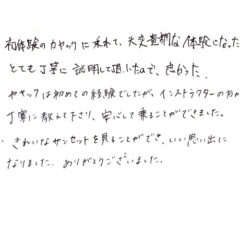 初体験のカヤックに乗れて、大変貴重な体験になった
とても丁寧に説明して頂いたので、良かった.
カヤックは初めての経験でしたが、インストラクターの方が
丁寧に教えて下さり、安心して乗ることができました。
きれいなサンセットを見ることができ、いい思い出に
なりました. ありがとうございました.